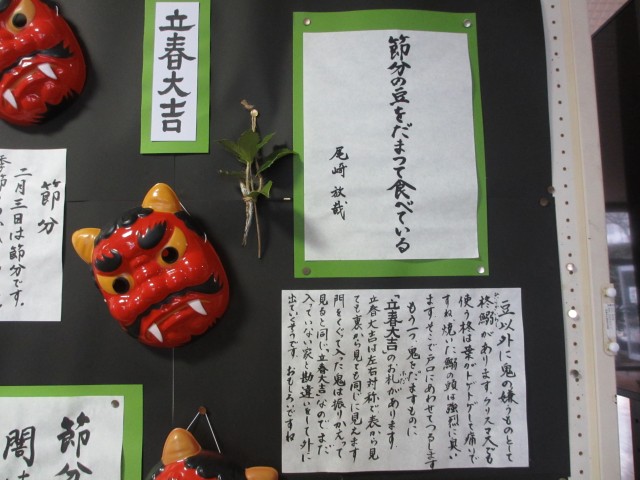 立春大吉
節分の豆をだまつて食べている
尾崎放哉
豆以外に鬼の嫌うものとして
柊鰯があります。クリスマスでも
使う柊は葉がトゲトゲして痛いで
すね。焼いた鰯の頭は強烈に臭い
ます。そこで戸口にあわせてつるします
もう一つ鬼をだますものに
「立春大吉」のお札があります
立春大吉は左右対称で表から見
ても裏から見ても同じに見えます
門をくぐって入った鬼は振りかえって
見ると同じ「立春大吉」なのでまだ
入っていない家と勘違いをして外に
出ていくそうです。おもしろいですね
節分
二月三日は節分です。
季節
節分
闇